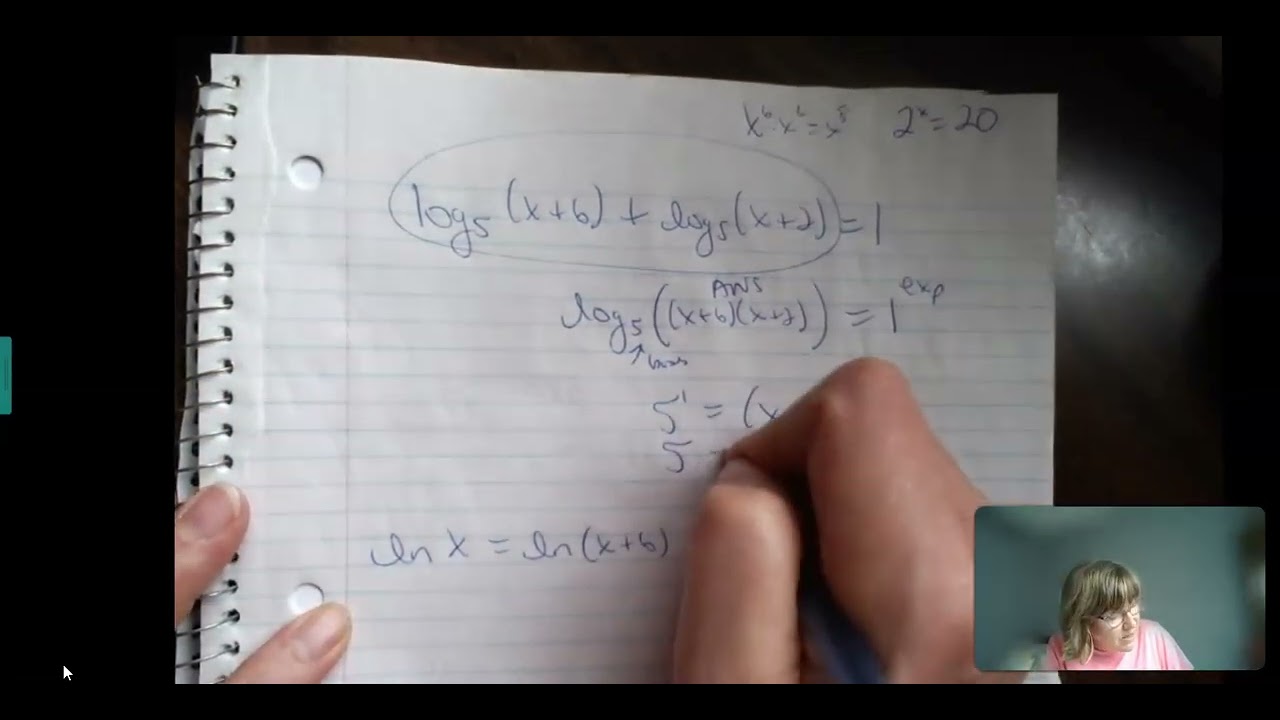 x⁶·x⁶=x⁸ 2ˣ=20
log₅(x+6)+log₅(x+2)=1
ANS exp
log₅((x+6)(x+2))=1
↑base
5¹=(x
5
ln x=ln(x+6)